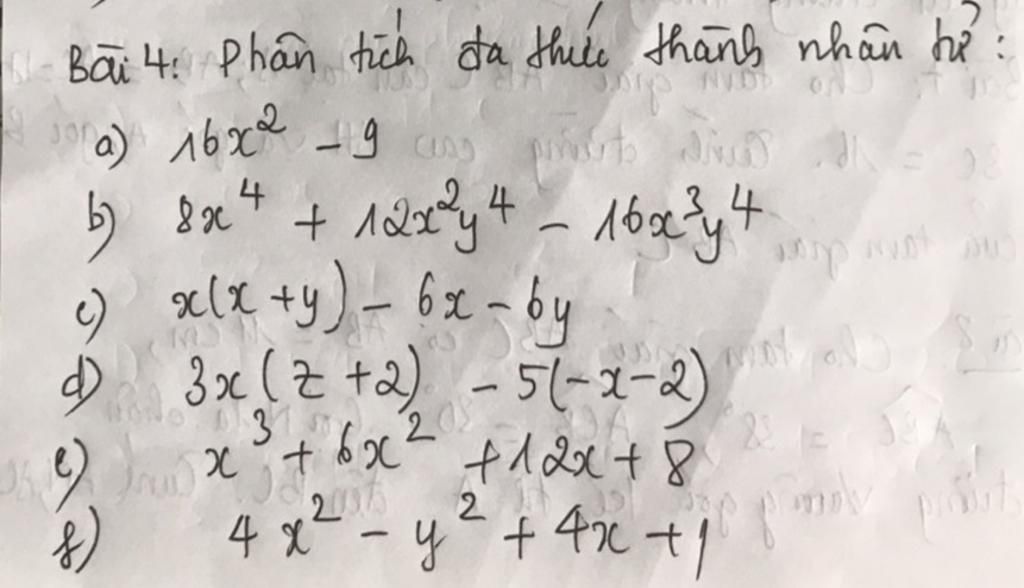 Bài 4: Phân tích đa thức thành nhân tử :
a) 16x² - 9
b) 8x⁴ + 12x²y⁴ - 16x³y⁴
c) x(x + y) - 6x - 6y
d) 3x(z + 2) - 5(-x - 2)
e) x³ + 6x² + 12x + 8
f) 4x² - y² + 4x + 1